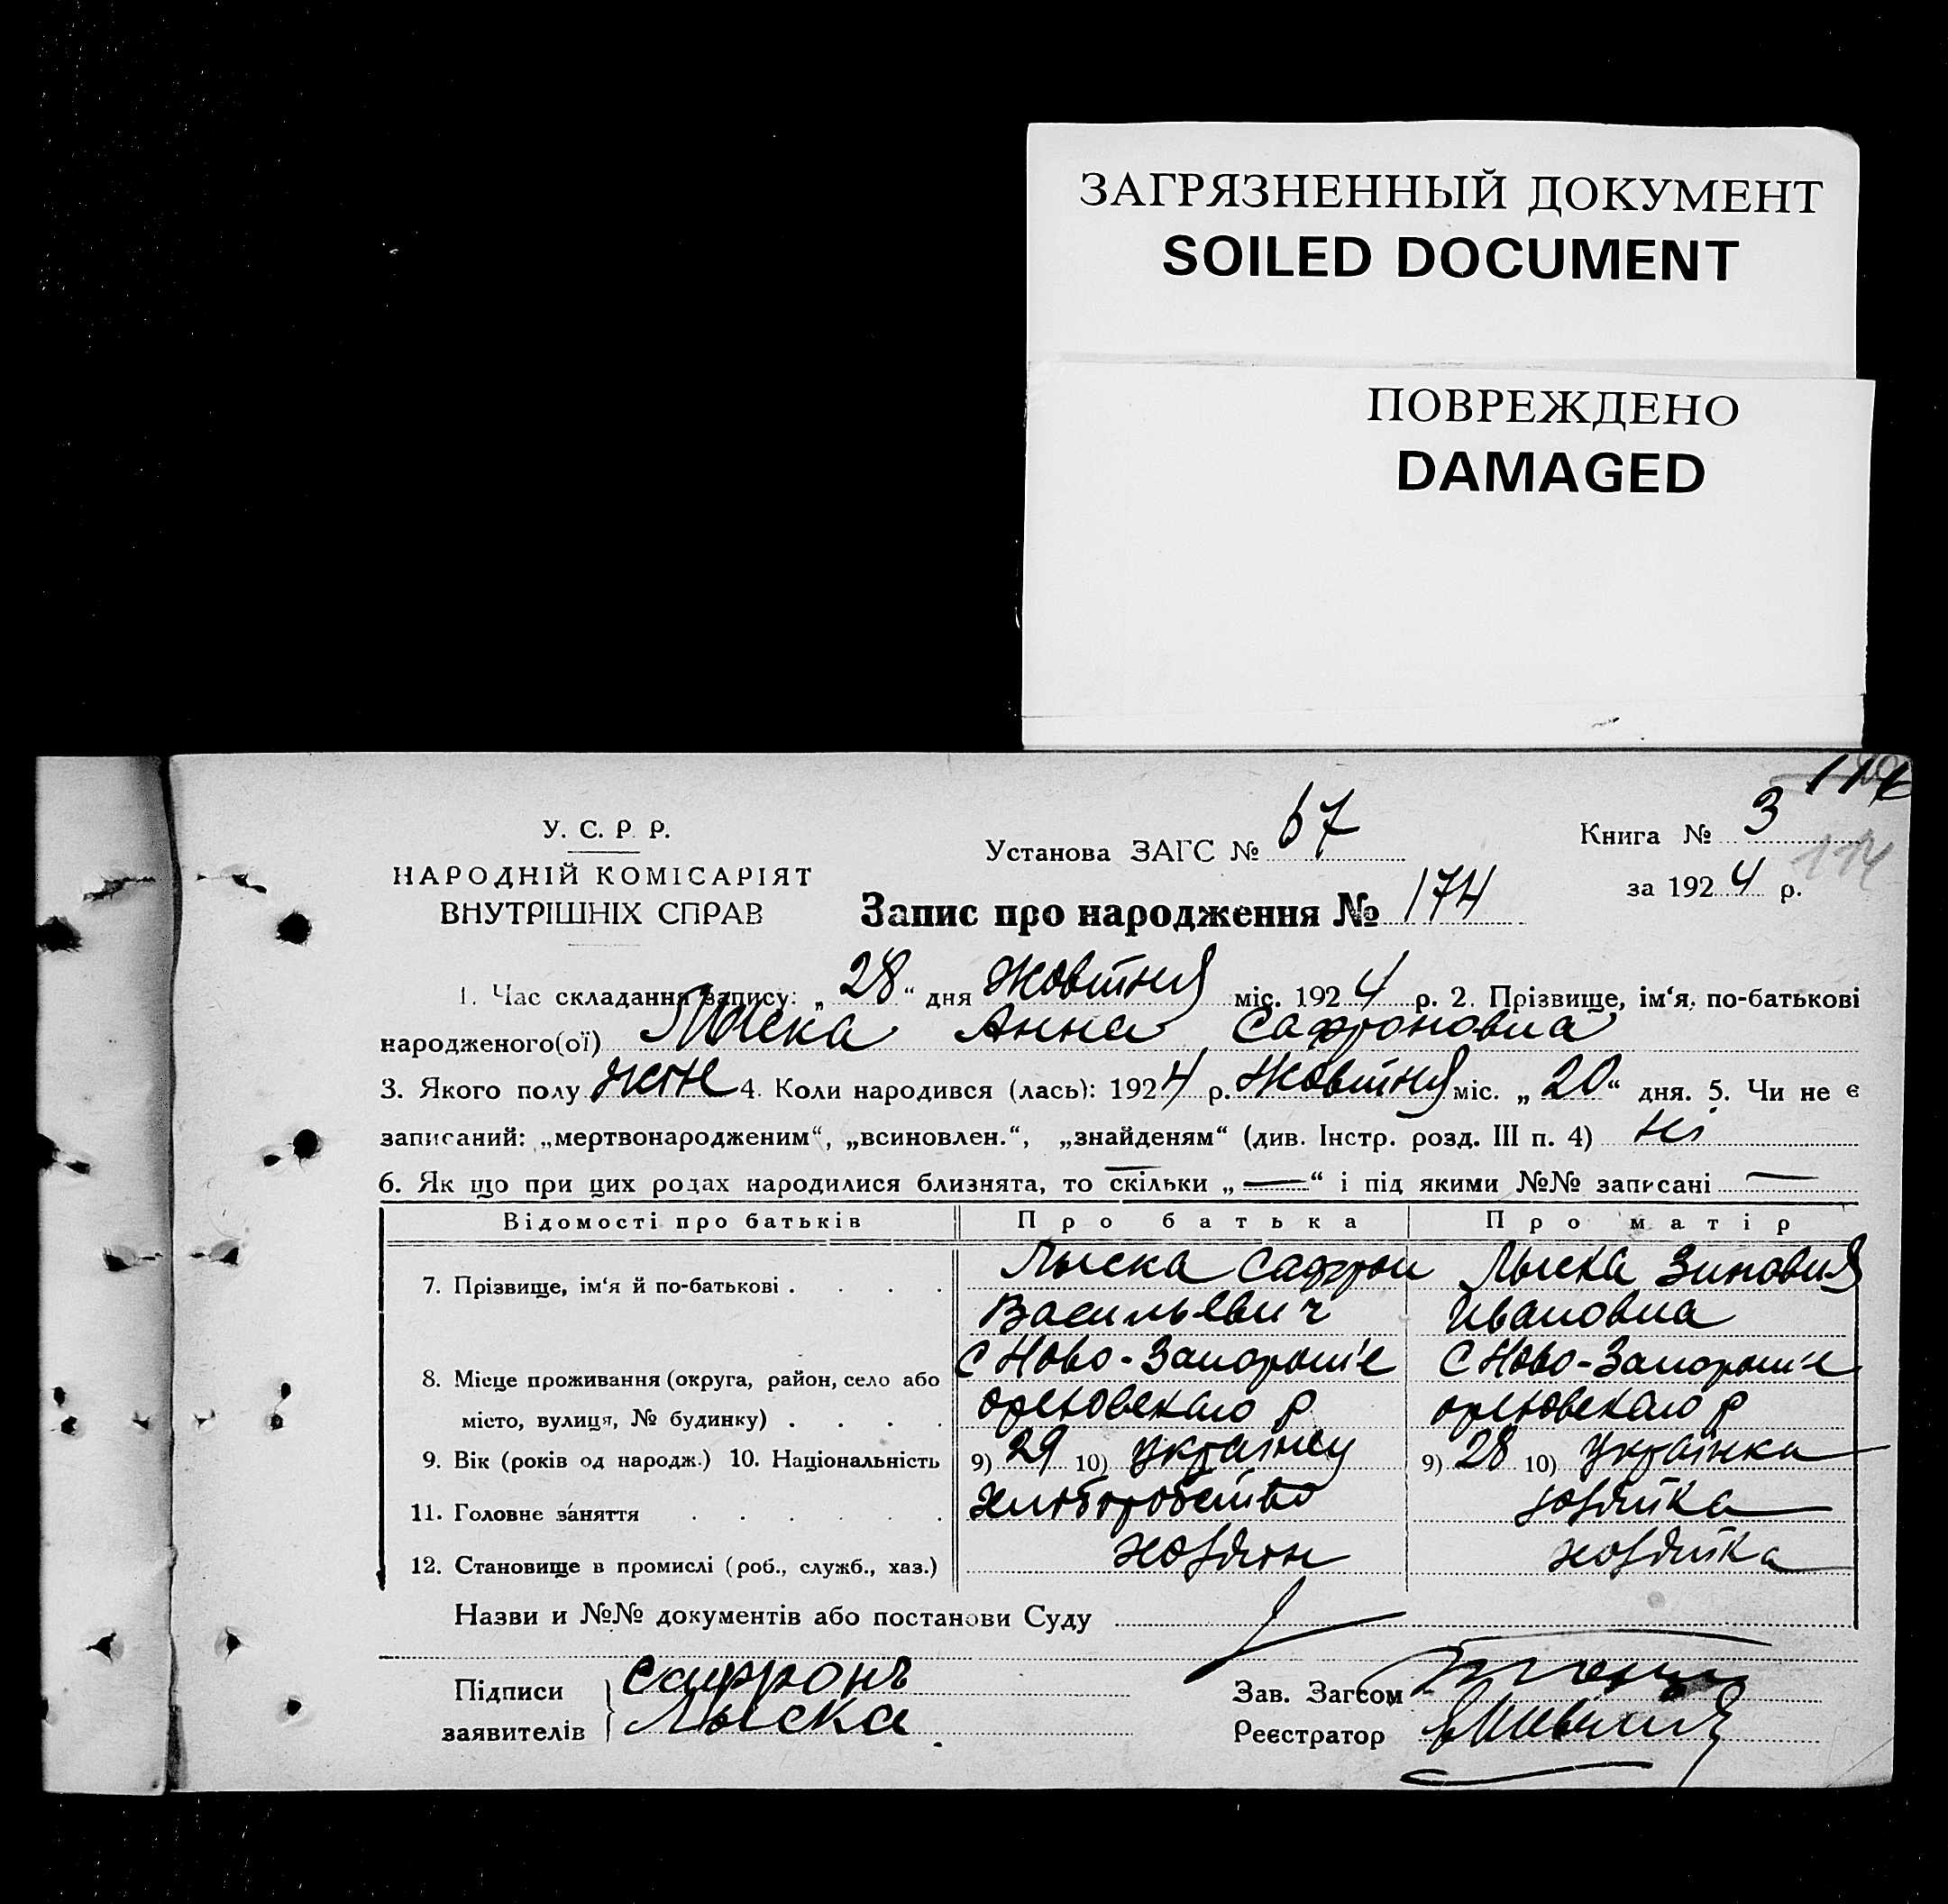 ЗАГРЯЗНЕННЫЙ ДОКУМЕНТ
SOILED DOCUMENT
ПОВРЕЖДЕНО
DAMAGED
114
У. С. Р Р.
НАРОДНІЙ КОМІСАРІЯТ
ВНУТРІШНІХ СПРАВ
Установа ЗАГС № 67
Книга № 3
за 1924 р.
114
Запис про народження № 174
1. Час складання запису: „28“ дня Жовтня міс. 1924 р. 2. Прізвище, ім‘я, по-батькові
народженого(ої) Лыска Анна Сафроновна
3. Якого полу жен 4. Коли народився (лась): 1924 р. Жовтня міс. „20“ дня. 5. Чи не є
записаний: „мертвонародженим“, „всиновлен.“, „знайденям“ (див. Інстр. розд. III п. 4) ні
6. Як що при цих родах народилися близнята, то скільки „—“ і під якими №№ записані —
Відомості про батьків Про батька Про матір
7. Прізвище, ім‘я й по-батькові . . . . Лыска Сафрон Лыска Зиновия
Васильевич Ивановна
8. Місце проживання (округа, район, село або С Ново-Запорож'е С Ново-Запорож'е
місто, вулиця, № будинку) . . . . Ореховскаго р Ореховскаго р
9. Вік (років од народж.) 10. Національність 9) 29 10) Українец 9) 28 10) Українка
11. Головне заняття . . . . . . Хлиборобство хозяйка
12. Становище в промислі (роб., служб., хаз.) хозяин хозяйка
Назви и №№ документів або постанови Суду
Підписи заявителів Сафронъ
Лыска
Зав. Загсом
Реєстратор